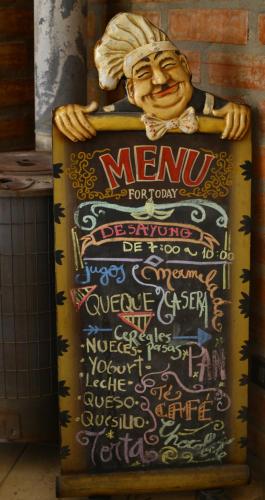 MENU
FOR TODAY
DESAYUNO
DE 7:00 A 10:00
jugos Mermelada
QUEQUE CASERA
Cereales
NUECES - pasas
YOGURT PAN
LECHE
QUESO Té
QUESILLO CAFÉ
Torta Chocolate